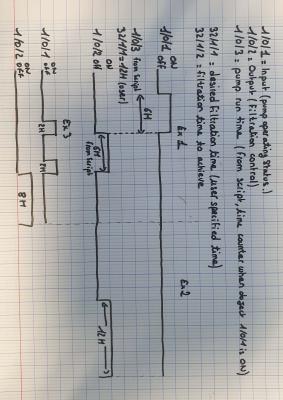 1/0/1 = Input (pump operating status.)
1/0/2 = Output (Filtration control)
1/0/3 = pump run time (from script, time counter when object 1/0/1 is ON)
32/1/1 = desired filtration time (user specified time)
32/1/2 = filtration time to achieve
Ex 1
Ex 2
1/0/1 ON
OFF
1/0/3 from script
6H
32/1/1 = 12H (user)
ON
1/0/2 OFF
6H
from script
12H
Ex 3
ON
1/0/1 OFF
2H
2H
ON
1/0/2 OFF
8H